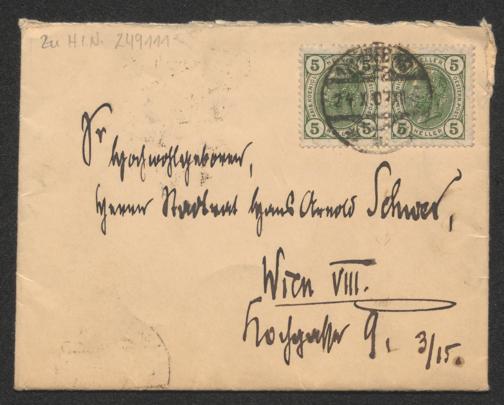 Zu H.I.N. 249111
5 5 5 5
5 HELLER 5 5 HELLER 5
Sr Hochwohlgeboren,
Herrn Stadtrat Hans Arnold Schwer,
Wien VIII.
Kochgasse 9, 3/15.